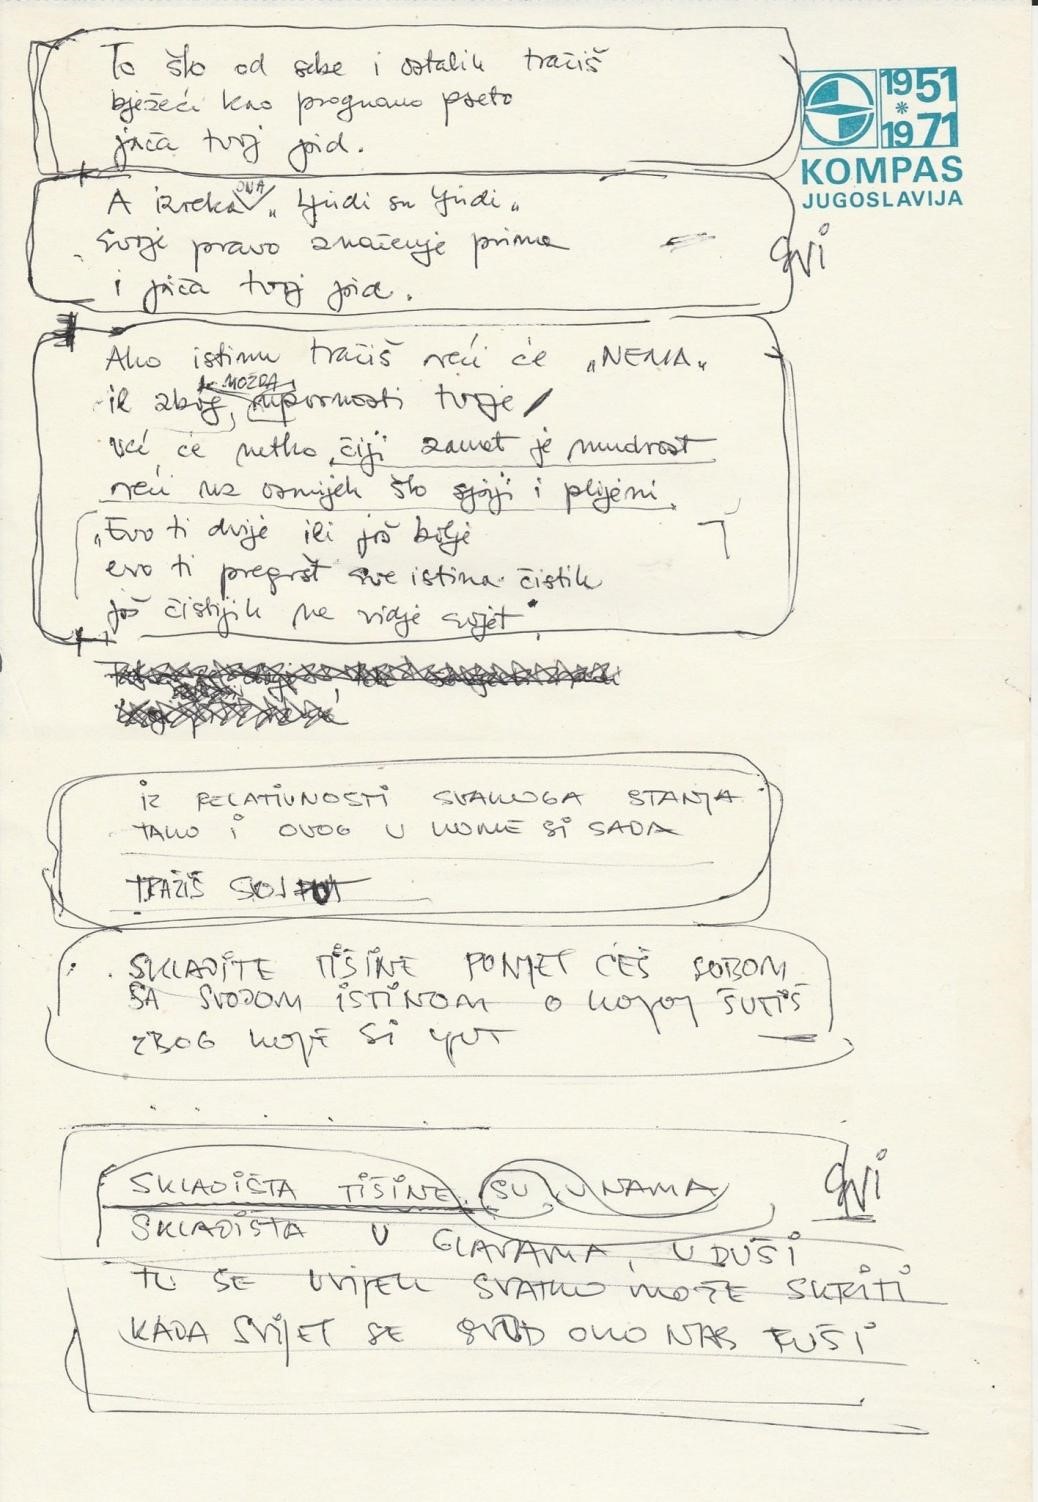 To što od sebe i ostalih tražiš
bježeći kao prognano pseto
jača tvoj jid.
1951
*
1971
KOMPAS
JUGOSLAVIJA
A izreka OVA „Ljudi su ljudi„
svoje pravo značenje prima
i jača tvoj jid.
SVI
Ako istinu tražiš reći će „NEMA„
il zbog, MOŽDA upornosti tvoje
već će netko čiji zanat je mudrost
reći uz osmijeh što sjaji i plijeni.
„Evo ti dvije ili još bolje
evo ti pregršt sve istina čistih
još čistijih ne vidje svijet"
IZ RELATIVNOSTI SVAKOGA STANJA
TAKO I OVOG U KOME SI SADA
TRAŽIŠ SVOJ PUT
SKLADIŠTE TIŠINE PONIJET ĆEŠ SOBOM
SA SVOJOM ISTINOM O KOJOJ ŠUTIŠ
ZBOG KOJE SI LJUT
SKLADIŠTA TIŠINE SU U NAMA
SVI
SKLADIŠTA U GLAVAMA, U DUŠI
TU SE UVIJEK SVATKO MOŽE SKRITI
KADA SVIJET SE SVUD OKO NAS RUŠI